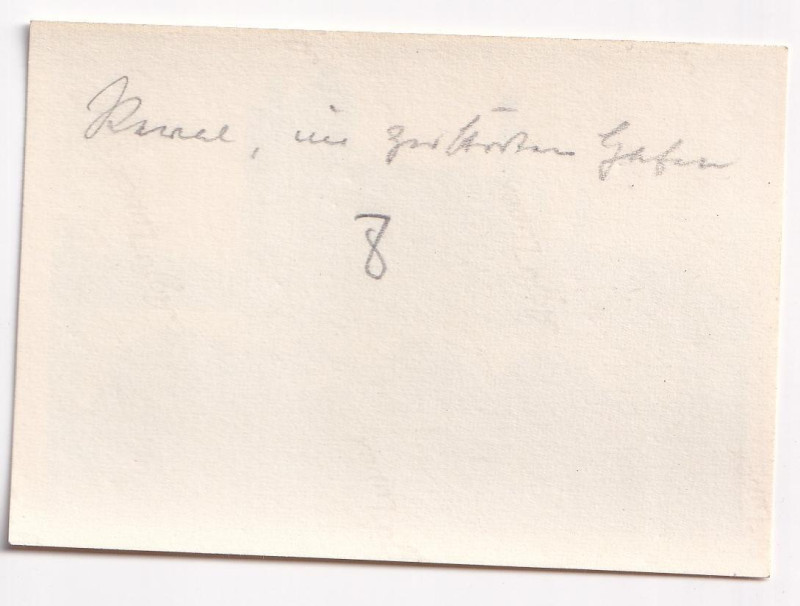 Reval, im zerstörten Hafen
8